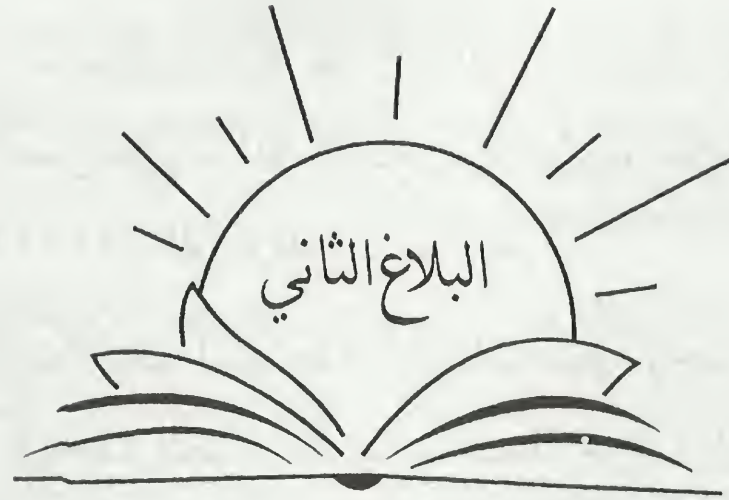 البلاغ الثاني